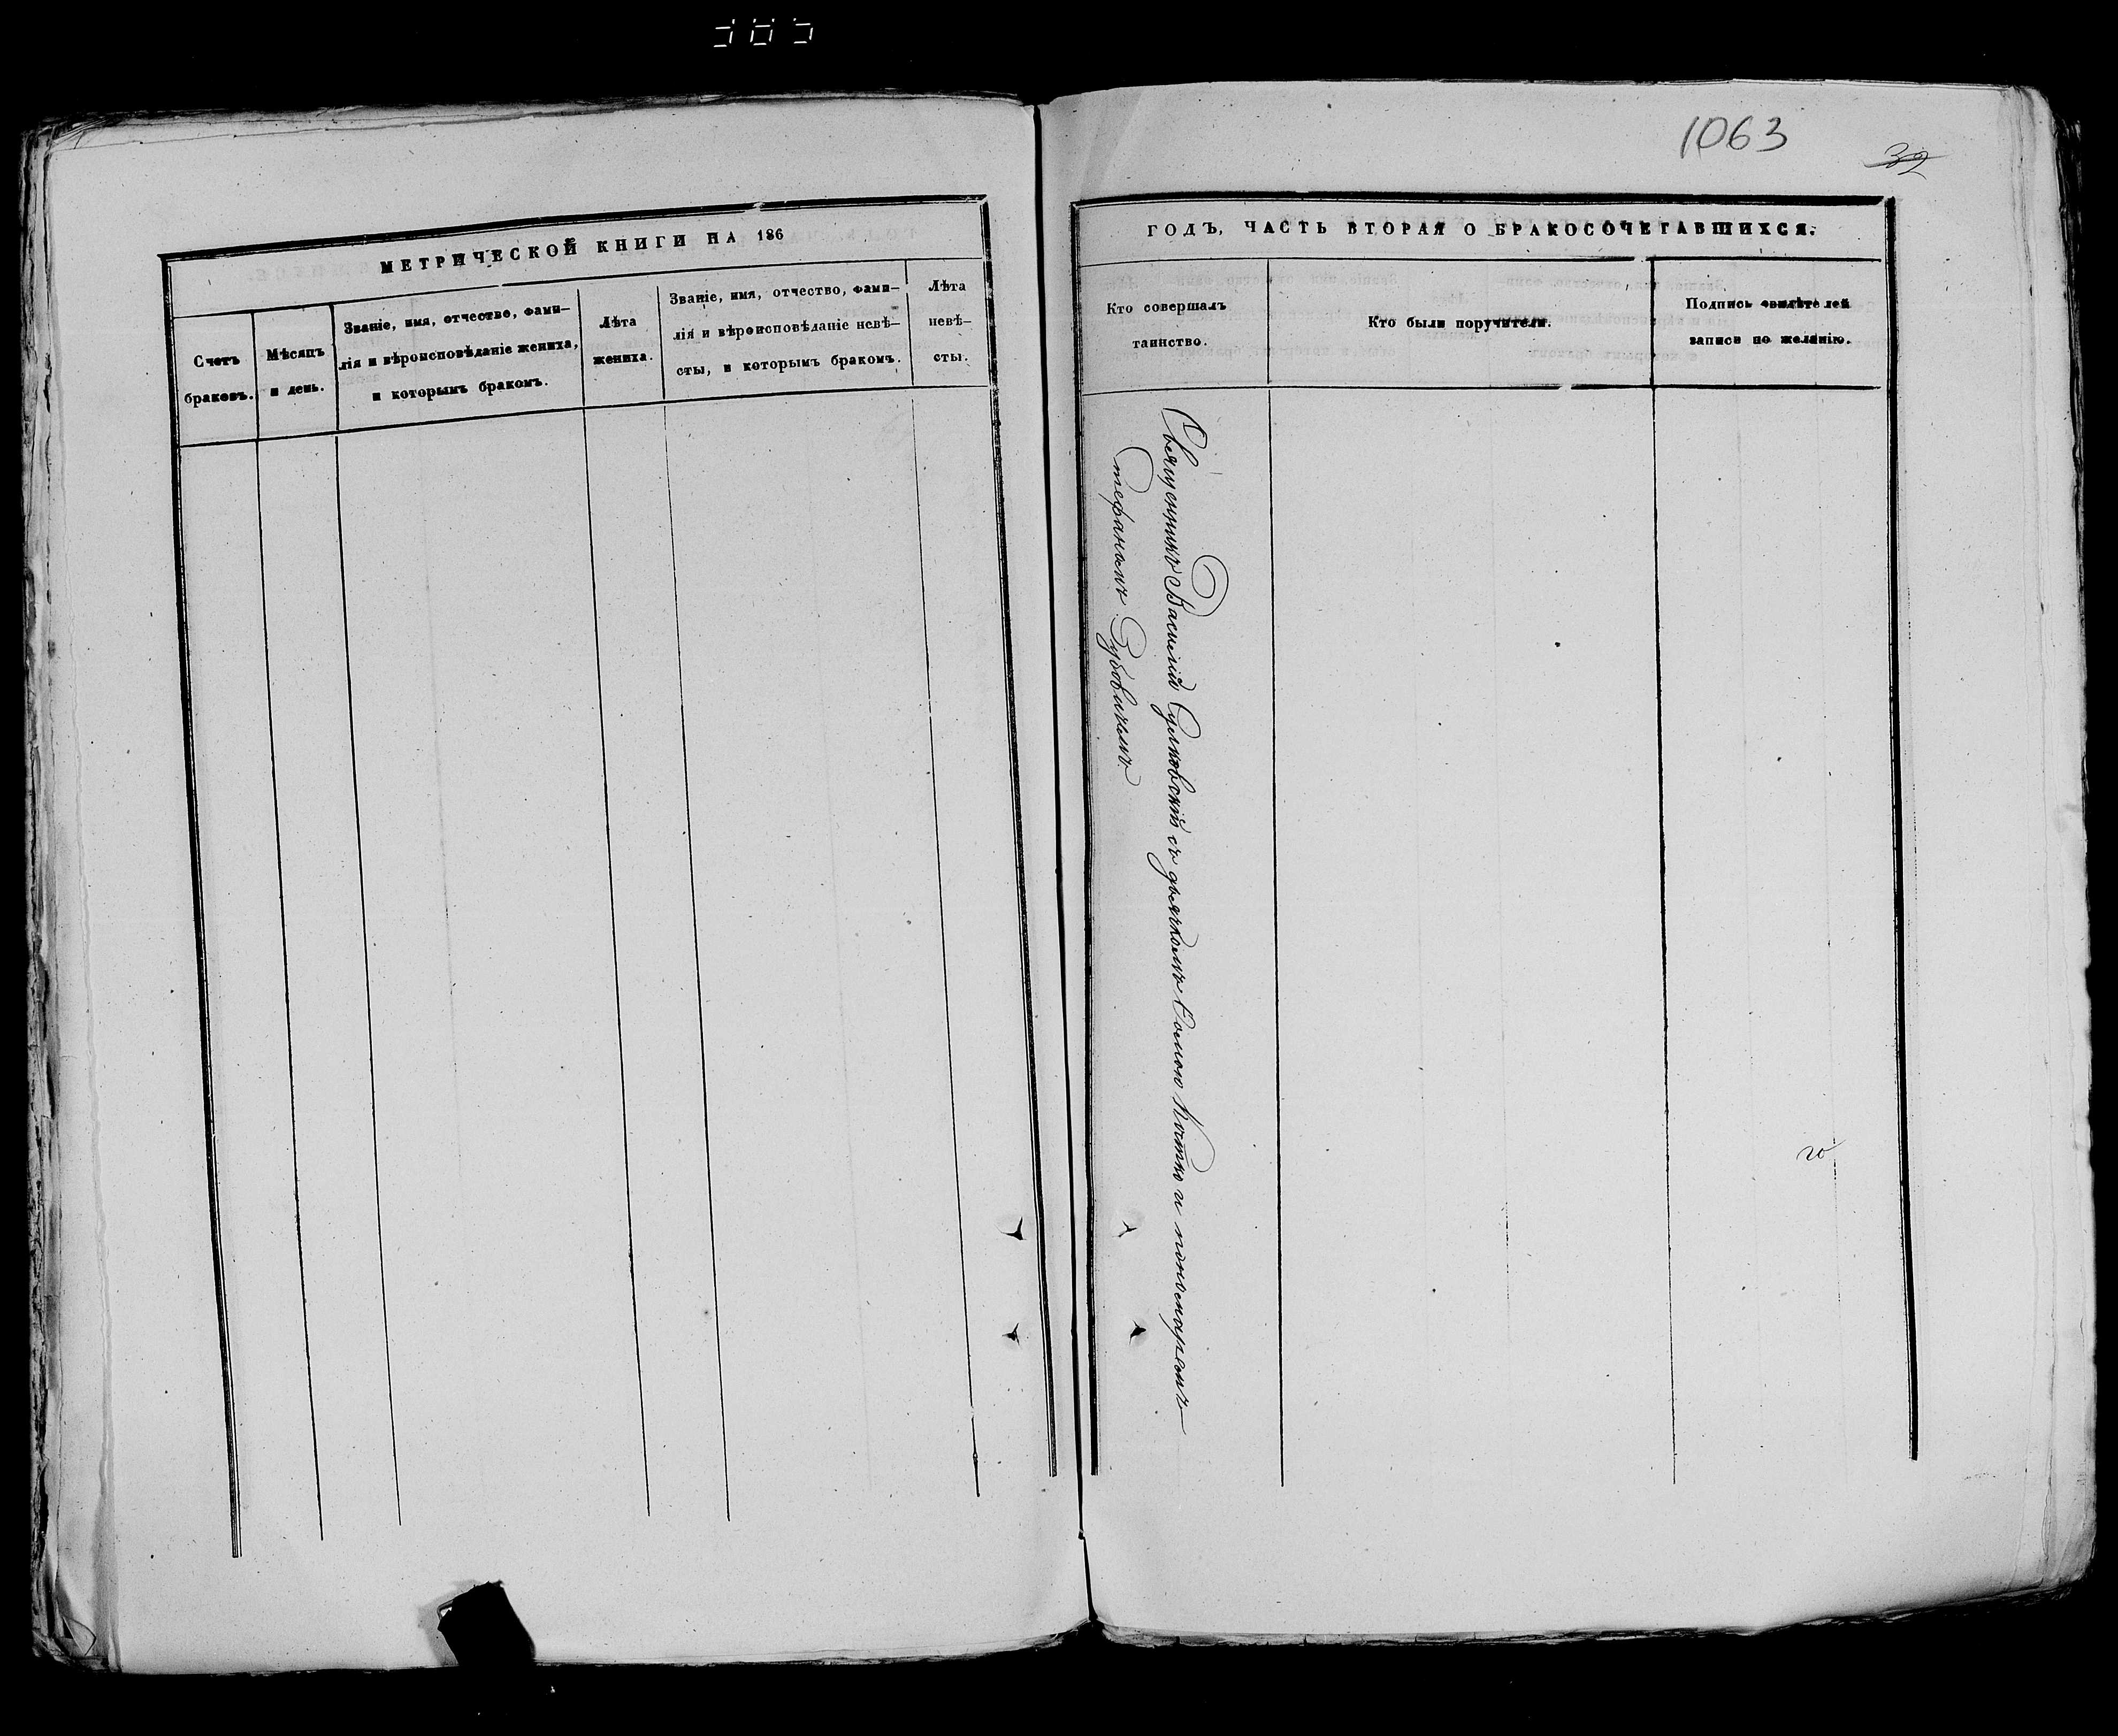 МЕТРИЧЕСКОЙ КНИГИ НА 186
Счетъ
браковъ.
Мѣсяцъ
и день.
Званіе, имя, отчество, фами-
лія и вѣроисповѣданіе жениха,
и которымъ бракомъ.
Лѣта
жениха.
Званіе, имя, отчество, фами-
лія и вѣроисповѣданіе невѣ-
сты, и которымъ бракомъ.
Лѣта
невѣ-
сты.
1063
32
ГОДЪ, ЧАСТЬ ВТОРАЯ О БРАКОСОЧЕТАВШИХСЯ.
Кто совершалъ
таинство.
Кто были поручители.
Подпись свидѣтелей
записи по желанію.
Священникъ Василій Сулковскій съ дьячкомъ Ѳомою и пономаремъ
Стефаномъ